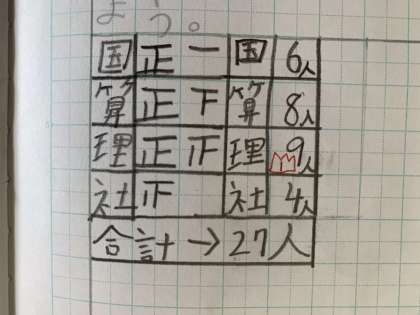 よう。
国 正一 国 6人
算 正下 算 8人
理 正正 理 9人
社 正 社 4人
合計→27人